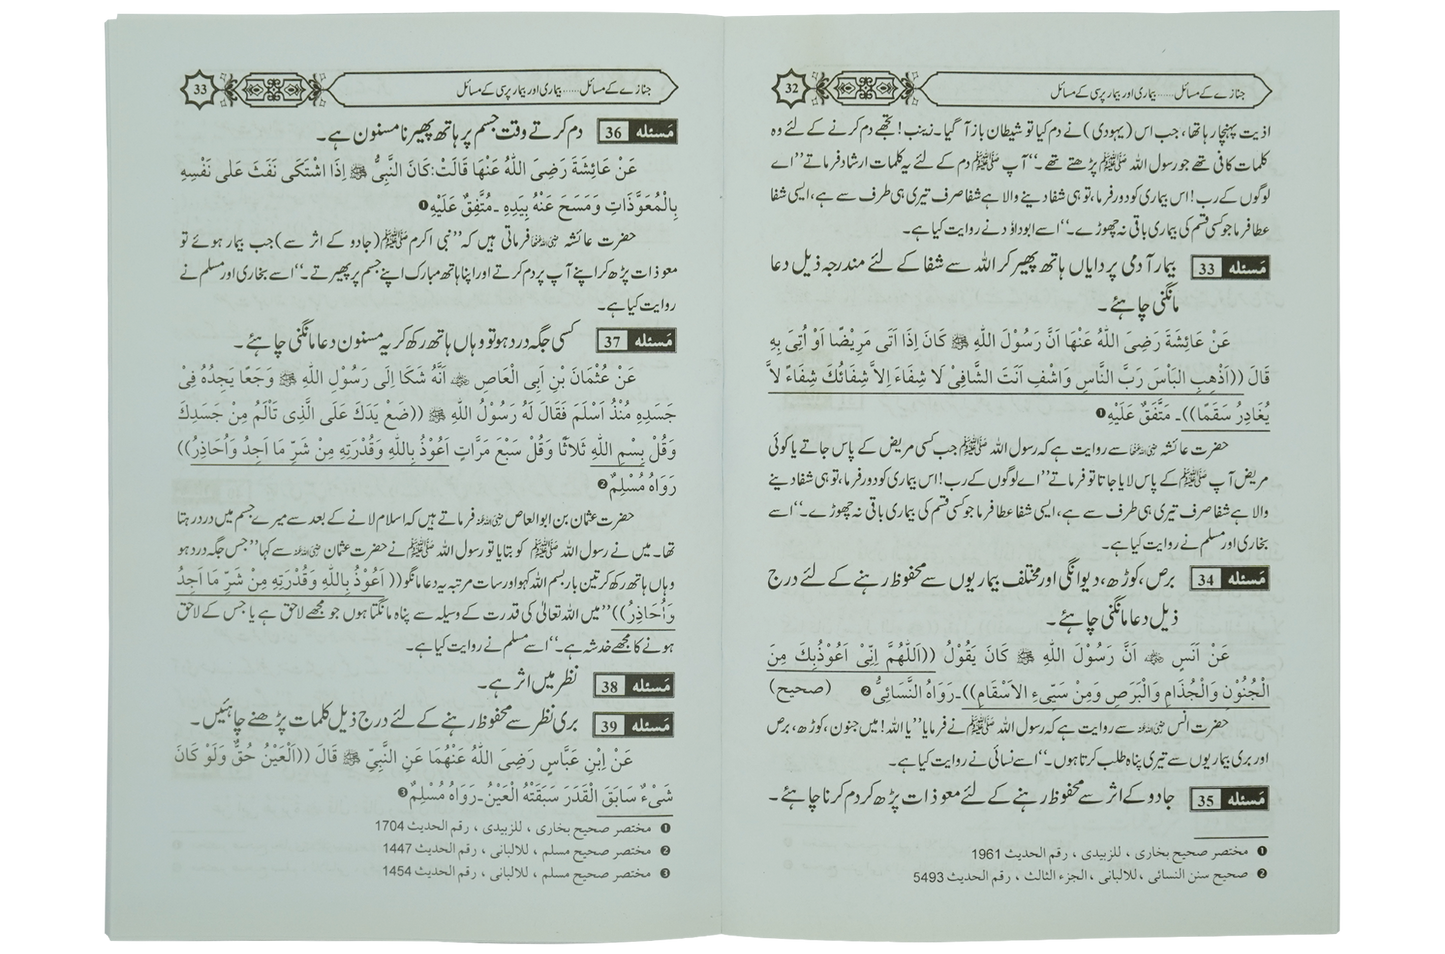 جنازے کے مسائل ...... بیماری اور بیمار پرسی کے مسائل
32
اذیت پہنچا رہا تھا، جب اس (یہودی) نے دم کیا تو شیطان باز آ گیا۔ زینب! تجھے دم کرنے کے لئے وہ
کلمات کافی تھے جو رسول اللہ ﷺ پڑھتے تھے۔‘‘ آپ ﷺ دم کے لئے یہ کلمات ارشاد فرماتے ’’اے
لوگوں کے رب! اس بیماری کو دور فرما، تو ہی شفا دینے والا ہے شفا صرف تیری ہی طرف سے ہے، ایسی شفا
عطا فرما جو کسی قسم کی بیماری باقی نہ چھوڑے۔‘‘ اسے ابوداؤد نے روایت کیا ہے۔
مَسئله 33 بیمار آدمی پر دایاں ہاتھ پھیر کر اللہ سے شفا کے لئے مندرجہ ذیل دعا
مانگنی چاہئے۔
عَنْ عَائِشَةَ رَضِىَ اللّٰهُ عَنْهَا اَنَّ رَسُوْلَ اللّٰهِ ﷺ كَانَ اِذَا اَتَى مَرِيْضًا اَوْ اُتِىَ بِهِ
قَالَ ((اَذْهِبِ الْبَاْسَ رَبَّ النَّاسِ وَاشْفِ اَنْتَ الشَّافِىْ لَا شِفَاءَ اِلاَّ شِفَائُكَ شِفَاءً لاَّ
يُغَادِرُ سَقَمًا))۔ مُتَّفَقٌ عَلَيْهِ❶
حضرت عائشہ رضی اللہ عنہا سے روایت ہے کہ رسول اللہ ﷺ جب کسی مریض کے پاس جاتے یا کوئی
مریض آپ ﷺ کے پاس لایا جاتا تو فرماتے ’’اے لوگوں کے رب! اس بیماری کو دور فرما، تو ہی شفا دینے
والا ہے شفا صرف تیری ہی طرف سے ہے، ایسی شفا عطا فرما جو کسی قسم کی بیماری باقی نہ چھوڑے۔‘‘ اسے
بخاری اور مسلم نے روایت کیا ہے۔
مَسئله 34 برص، کوڑھ، دیوانگی اور مختلف بیماریوں سے محفوظ رہنے کے لئے درج
ذیل دعا مانگنی چاہئے۔
عَنْ اَنَسٍ رضی اللہ عنہ اَنَّ رَسُوْلَ اللّٰهِ ﷺ كَانَ يَقُوْلُ ((اَللّٰهُمَّ اِنِّىْ اَعُوْذُبِكَ مِنَ
الْجُنُوْنِ وَالْجُذَامِ وَالْبَرَصِ وَمِنْ سَيِّىءِ الْاَسْقَامِ))۔رَوَاهُ النَّسَائِىُّ❷ (صحیح)
حضرت انس رضی اللہ عنہ سے روایت ہے کہ رسول اللہ ﷺ نے فرمایا ’’یا اللہ! میں جنون، کوڑھ، برص
اور بری بیماریوں سے تیری پناہ طلب کرتا ہوں۔‘‘ اسے نسائی نے روایت کیا ہے۔
مَسئله 35 جادو کے اثر سے محفوظ رہنے کے لئے معوذات پڑھ کر دم کرنا چاہئے۔
❶ مختصر صحیح بخاری ، للزبیدی ، رقم الحدیث 1961
❷ صحیح سنن النسائی ، للالبانی ، الجزء الثالث ، رقم الحدیث 5493
جنازے کے مسائل ...... بیماری اور بیمار پرسی کے مسائل
33
مَسئله 36 دم کرتے وقت جسم پر ہاتھ پھیرنا مسنون ہے۔
عَنْ عَائِشَةَ رَضِىَ اللّٰهُ عَنْهَا قَالَتْ:كَانَ النَّبِىُّ ﷺ اِذَا اشْتَكَى نَفَثَ عَلى نَفْسِهِ
بِالْمُعَوَّذَاتِ وَمَسَحَ عَنْهُ بِيَدِهِ ۔مُتَّفَقٌ عَلَيْهِ❶
حضرت عائشہ رضی اللہ عنہا فرماتی ہیں کہ ’’نبی اکرم ﷺ (جادو کے اثر سے) جب بیمار ہوئے تو
معوذات پڑھ کر اپنے آپ پر دم کرتے اور اپنا ہاتھ مبارک اپنے جسم پر پھیرتے۔‘‘ اسے بخاری اور مسلم نے
روایت کیا ہے۔
مَسئله 37 کسی جگہ درد ہو تو وہاں ہاتھ رکھ کر یہ مسنون دعا مانگنی چاہئے۔
عَنْ عُثْمَانَ بْنِ اَبِى الْعَاصِ رضی اللہ عنہ اَنَّهُ شَكَا اِلَى رَسُوْلِ اللّٰهِ ﷺ وَجَعًا يَجِدُهُ فِىْ
جَسَدِهِ مُنْذُ اَسْلَمَ فَقَالَ لَهُ رَسُوْلُ اللّٰهِ ﷺ ((ضَعْ يَدَكَ عَلَى الَّذِى تَاَلَّمَ مِنْ جَسَدِكَ
وَقُلْ بِسْمِ اللّٰهِ ثَلاَثًا وَقُلْ سَبْعَ مَرَّاتٍ اَعُوْذُ بِاللّٰهِ وَقُدْرَتِهِ مِنْ شَرِّ مَا اَجِدُ وَاُحَاذِرُ))
رَوَاهُ مُسْلِمٌ❷
حضرت عثمان بن ابوالعاص رضی اللہ عنہ فرماتے ہیں کہ اسلام لانے کے بعد سے میرے جسم میں درد رہتا
تھا۔ میں نے رسول اللہ ﷺ کو بتایا تو رسول اللہ ﷺ نے حضرت عثمان رضی اللہ عنہ سے کہا ’’جس جگہ درد ہو
وہاں ہاتھ رکھ کر تین بار بسم اللہ کہو اور سات مرتبہ یہ دعا مانگو ((اَعُوْذُ بِاللّٰهِ وَقُدْرَتِهِ مِنْ شَرِّ مَا اَجِدُ
وَاُحَاذِرُ)) ’’میں اللہ تعالیٰ کی قدرت کے وسیلہ سے پناہ مانگتا ہوں جو مجھے لاحق ہے یا جس کے لاحق
ہونے کا مجھے خدشہ ہے۔‘‘ اسے مسلم نے روایت کیا ہے۔
مَسئله 38 نظر میں اثر ہے۔
مَسئله 39 بری نظر سے محفوظ رہنے کے لئے درج ذیل کلمات پڑھنے چاہئیں۔
عَنْ اِبْنِ عَبَّاسٍ رَضِىَ اللّٰهُ عَنْهُمَا عَنِ النَّبِىِّ ﷺ قَالَ ((اَلْعَيْنُ حَقٌّ وَلَوْ كَانَ
شَىْءٌ سَابَقَ الْقَدَرَ سَبَقَتْهُ الْعَيْنُ۔رَوَاهُ مُسْلِمٌ❸
❶ مختصر صحیح بخاری ، للزبیدی ، رقم الحدیث 1704
❷ مختصر صحیح مسلم ، للالبانی ، رقم الحدیث 1447
❸ مختصر صحیح مسلم ، للالبانی ، رقم الحدیث 1454